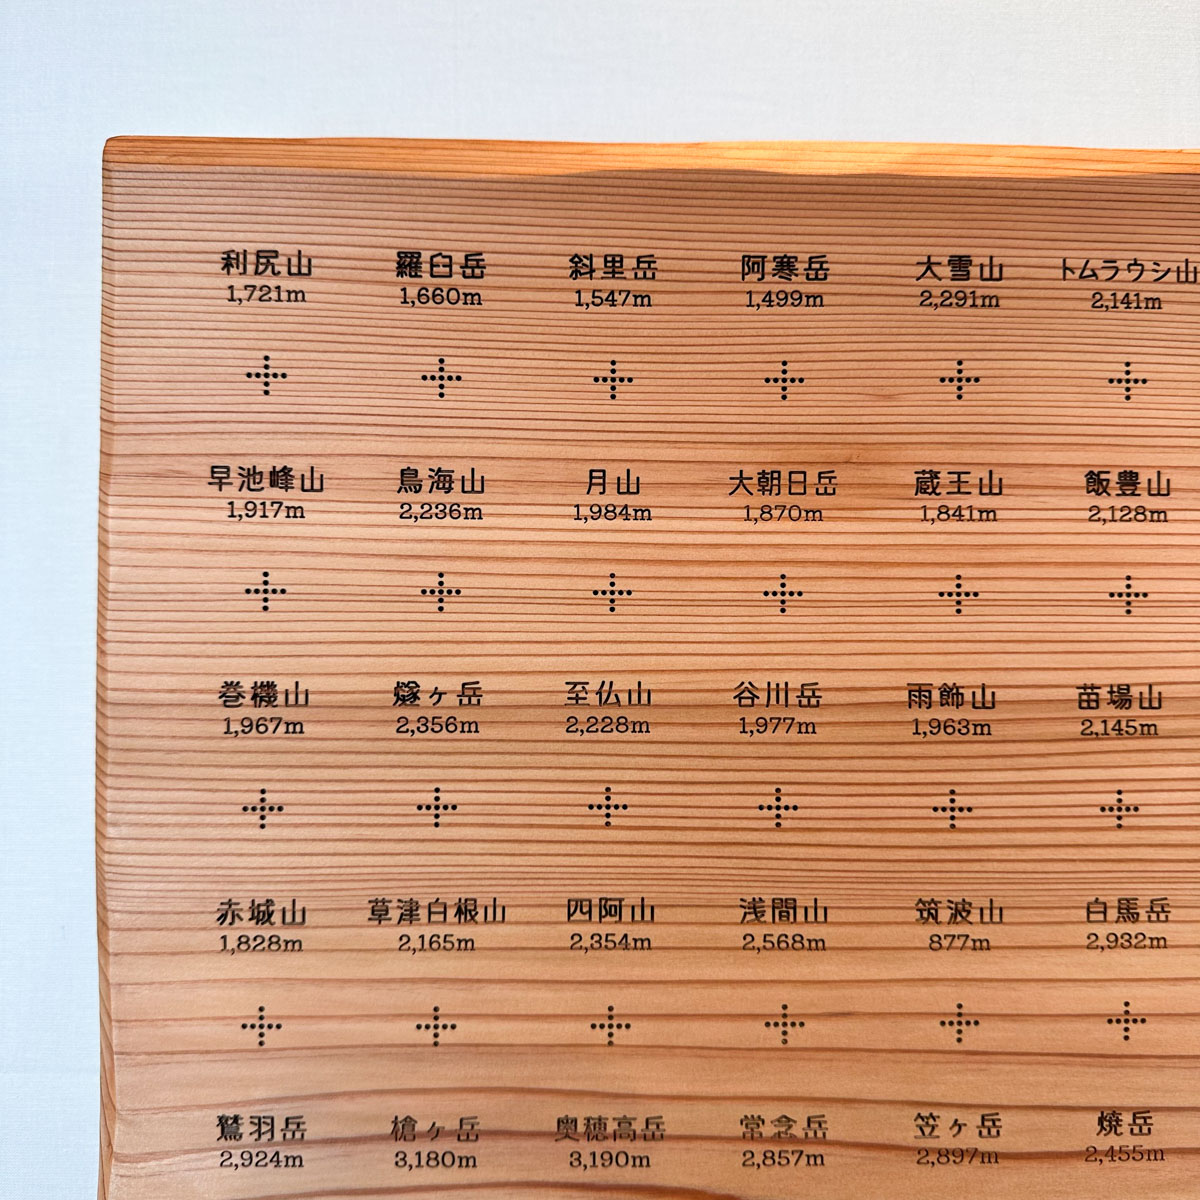 利尻山 羅臼岳 斜里岳 阿寒岳 大雪山 トムラウシ山
1,721m 1,660m 1,547m 1,499m 2,291m 2,141m
早池峰山 鳥海山 月山 大朝日岳 蔵王山 飯豊山
1,917m 2,236m 1,984m 1,870m 1,841m 2,128m
巻機山 燧ヶ岳 至仏山 谷川岳 雨飾山 苗場山
1,967m 2,356m 2,228m 1,977m 1,963m 2,145m
赤城山 草津白根山 四阿山 浅間山 筑波山 白馬岳
1,828m 2,165m 2,354m 2,568m 877m 2,932m
鷲羽岳 槍ヶ岳 奥穂高岳 常念岳 笠ヶ岳 焼岳
2,924m 3,180m 3,190m 2,857m 2,897m 2,455m